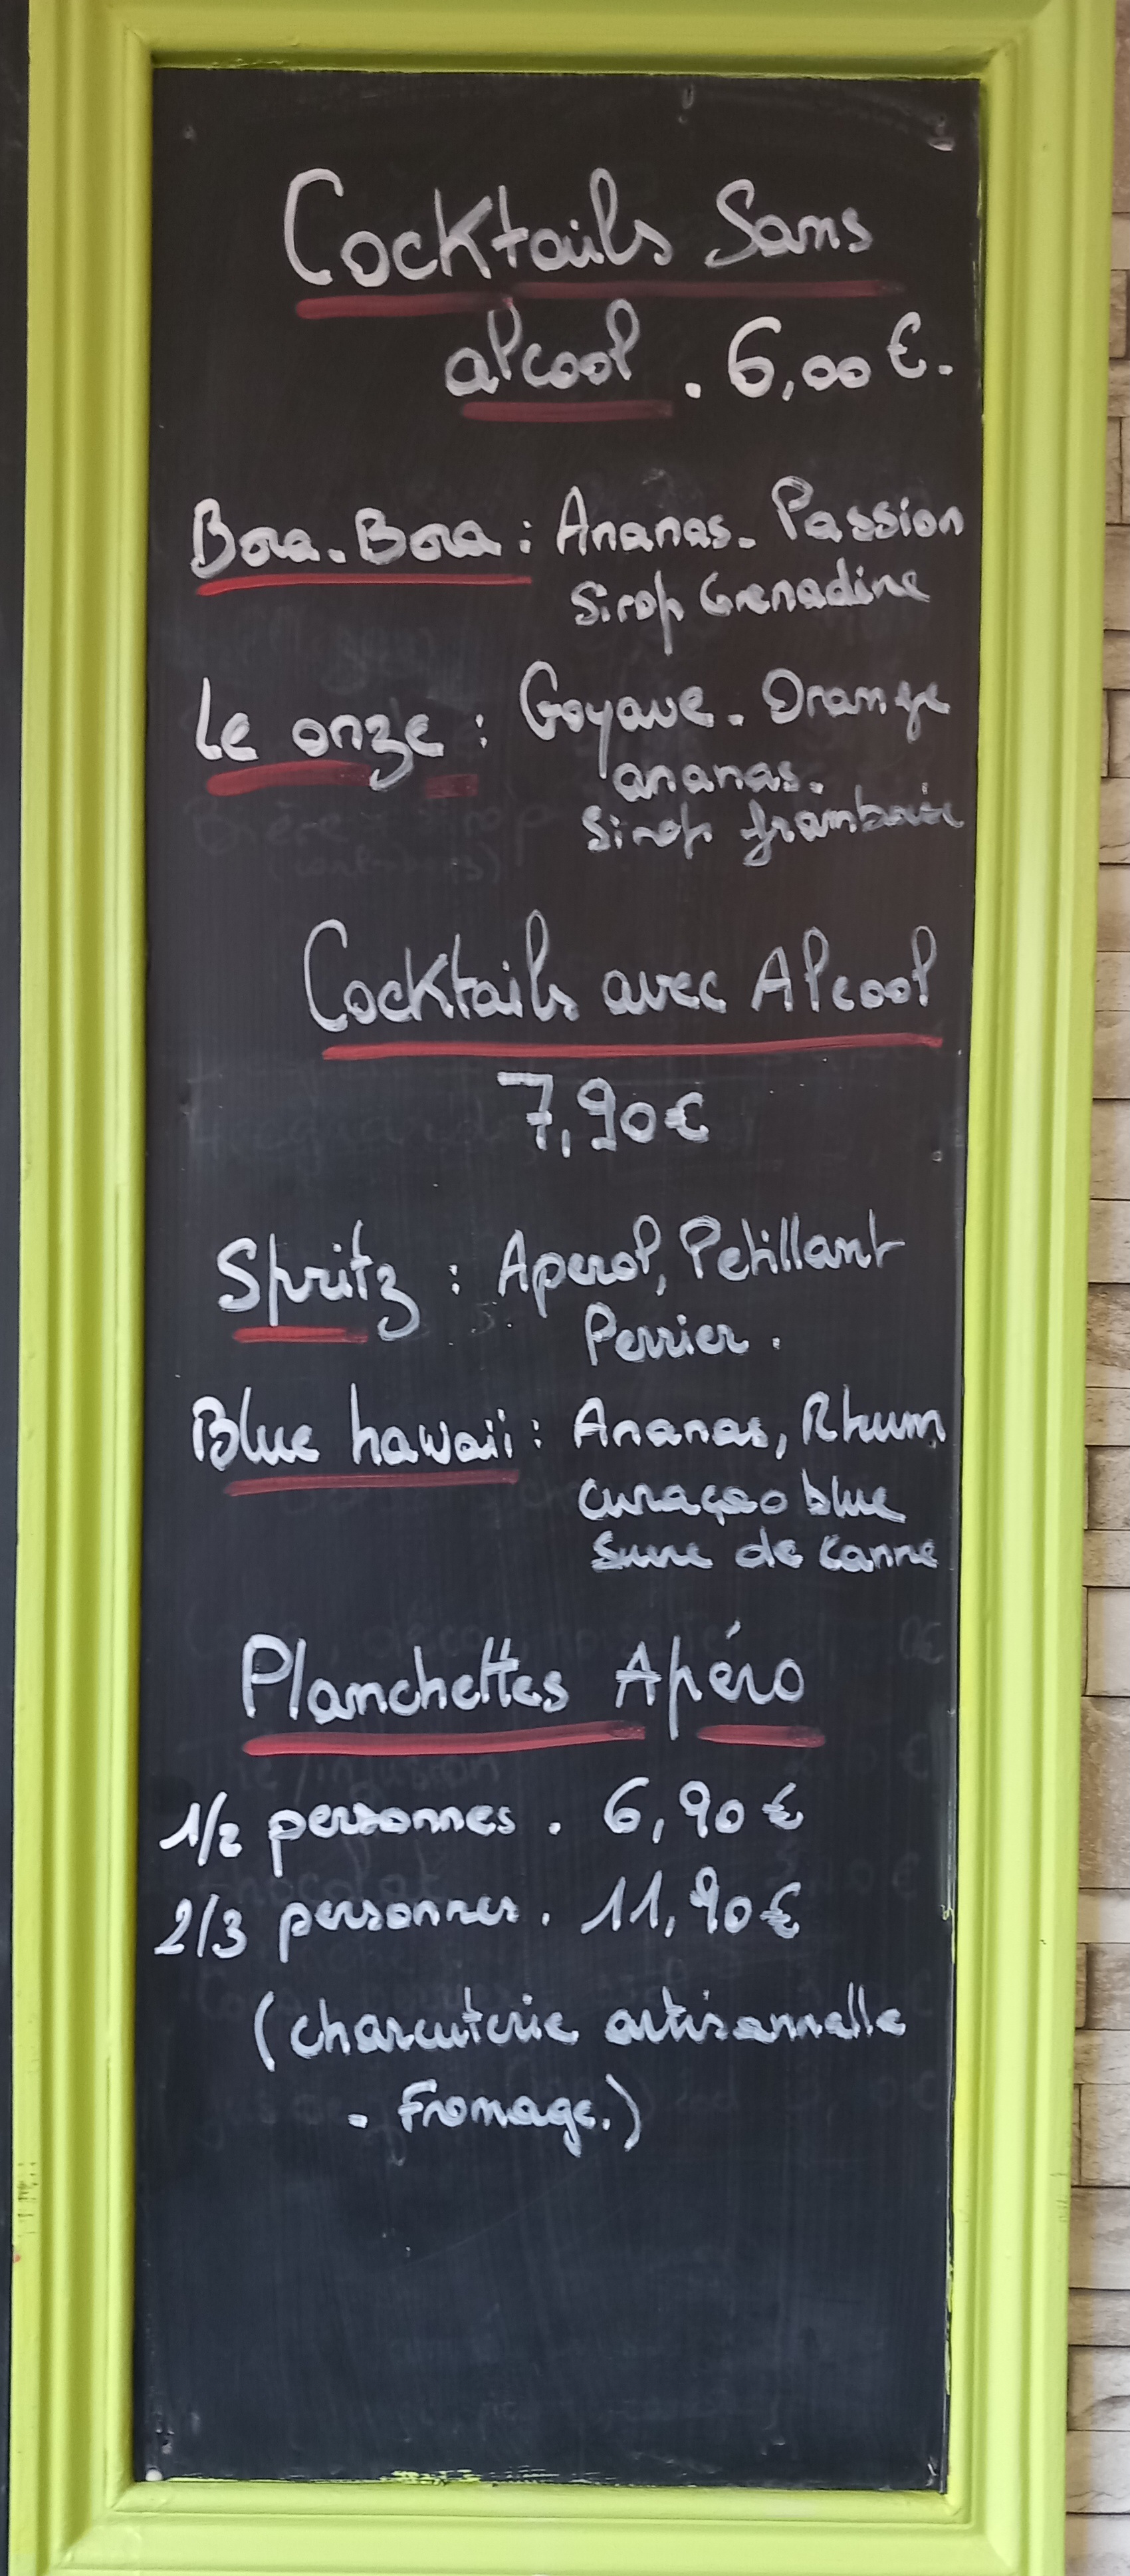 Cocktails Sans
alcool . 6,00 €.
Bora-Bora : Ananas - Passion
Sirop Grenadine
Le onze : Goyave - Orange
ananas.
Sirop framboise
Cocktails avec Alcool
7,90€
Spritz : Aperol, Petillant
Perrier .
Blue hawaii : Ananas, Rhum
curaçao blue
Sucre de canne
Planchettes Apéro
1/2 personnes . 6,90 €
2/3 personnes . 11,90€
(charcuterie artisannelle
- Fromage.)